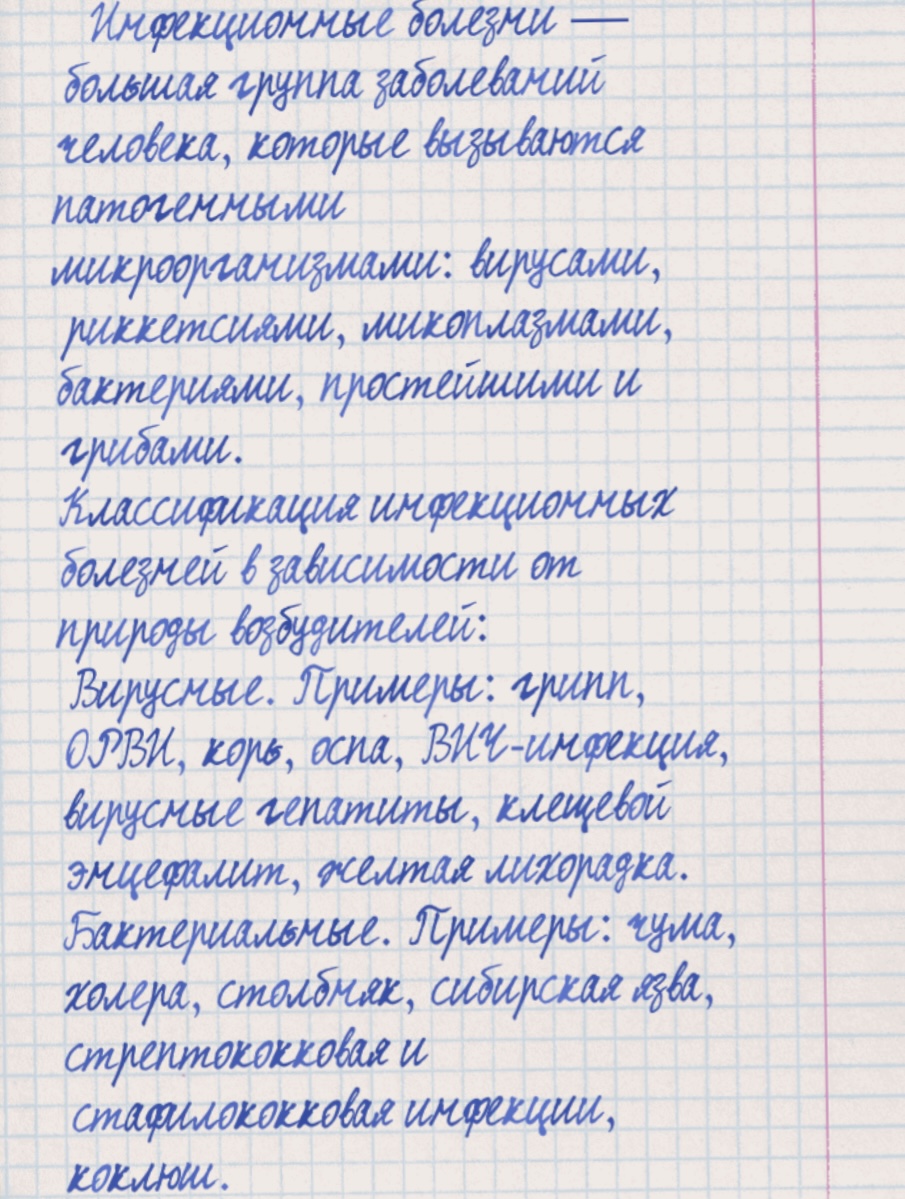 Инфекционные болезни —
большая группа заболеваний
человека, которые вызываются
патогенными
микроорганизмами: вирусами,
риккетсиями, микоплазмами,
бактериями, простейшими и
грибами.
Классификация инфекционных
болезней в зависимости от
природы возбудителей:
Вирусные. Примеры: грипп,
ОРВИ, корь, оспа, ВИЧ-инфекция,
вирусные гепатиты, клещевой
энцефалит, желтая лихорадка.
Бактериальные. Примеры: чума,
холера, столбняк, сибирская язва,
стрептококковая и
стафилококковая инфекции,
коклюш.